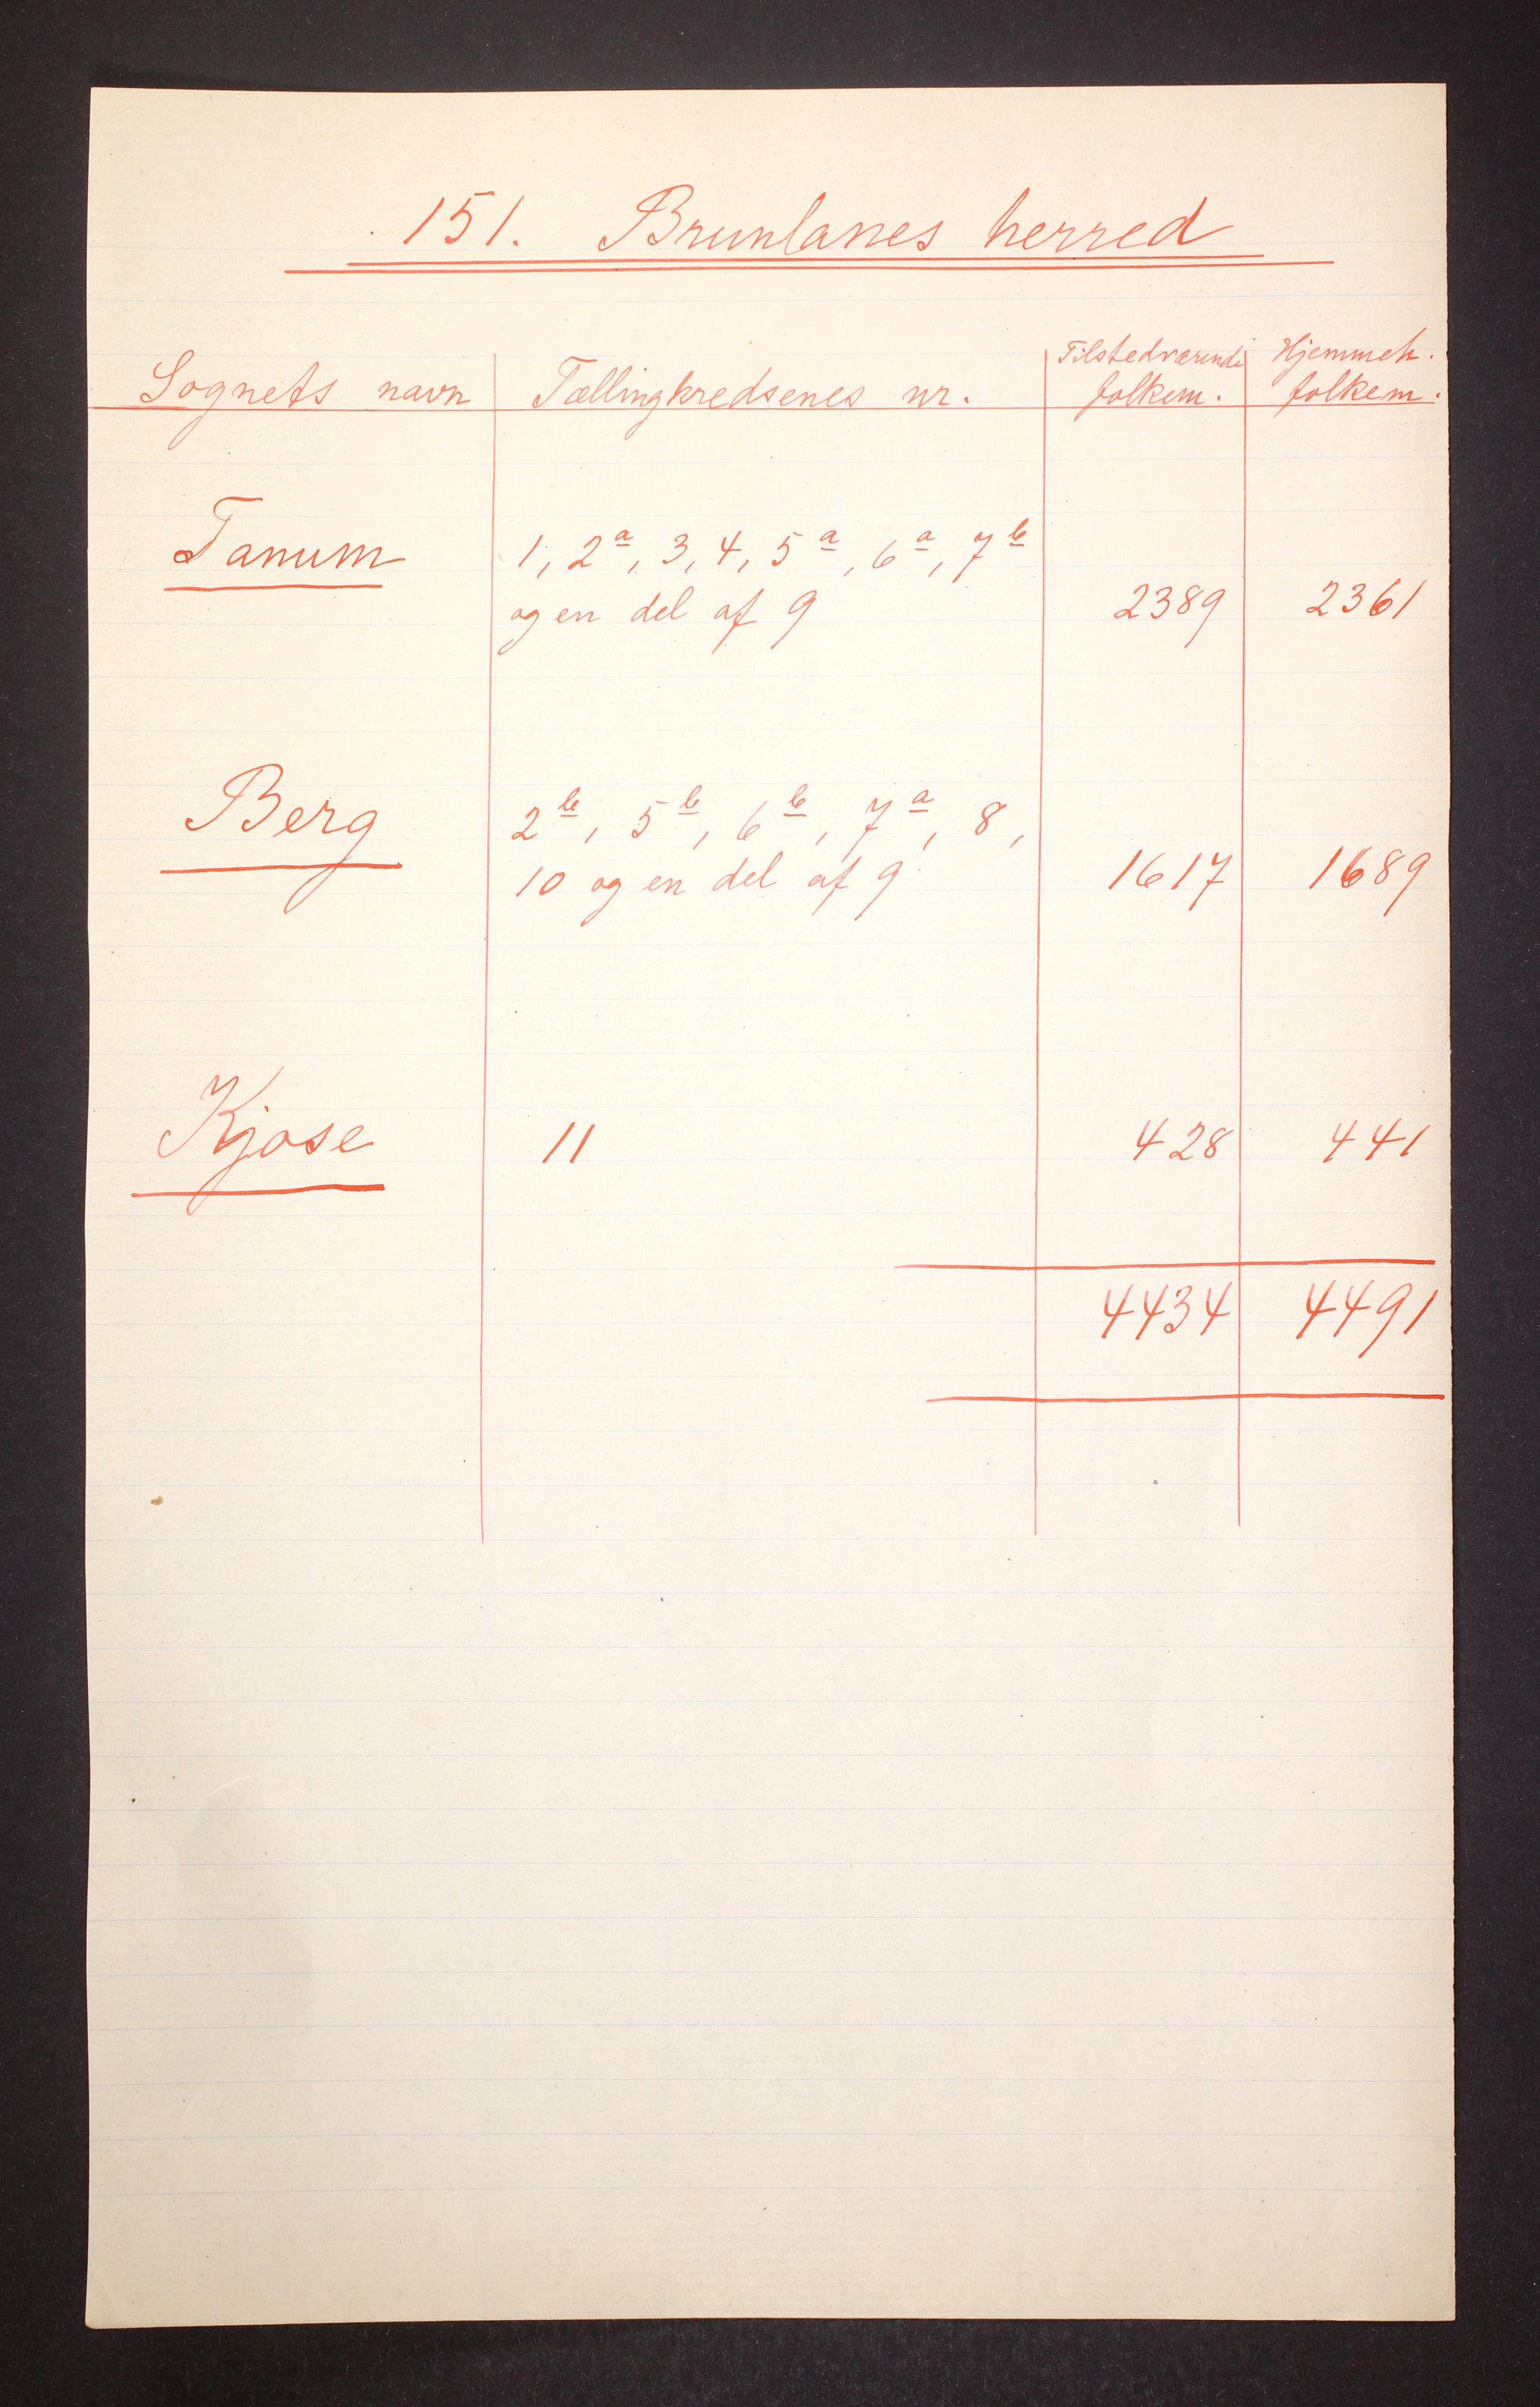 151. Brunlanes herred
Sognets navn Tællingkredsenes nr. Tilstedværende folkem. Hjemmeh. folkem.
Tanum 1, 2a, 3, 4, 5a, 6a, 7b
og en del af 9 2389 2361
Berg 2b, 5b, 6b, 7a, 8,
10 og en del af 9 1617 1689
Kjose 11 428 441
4434 4491